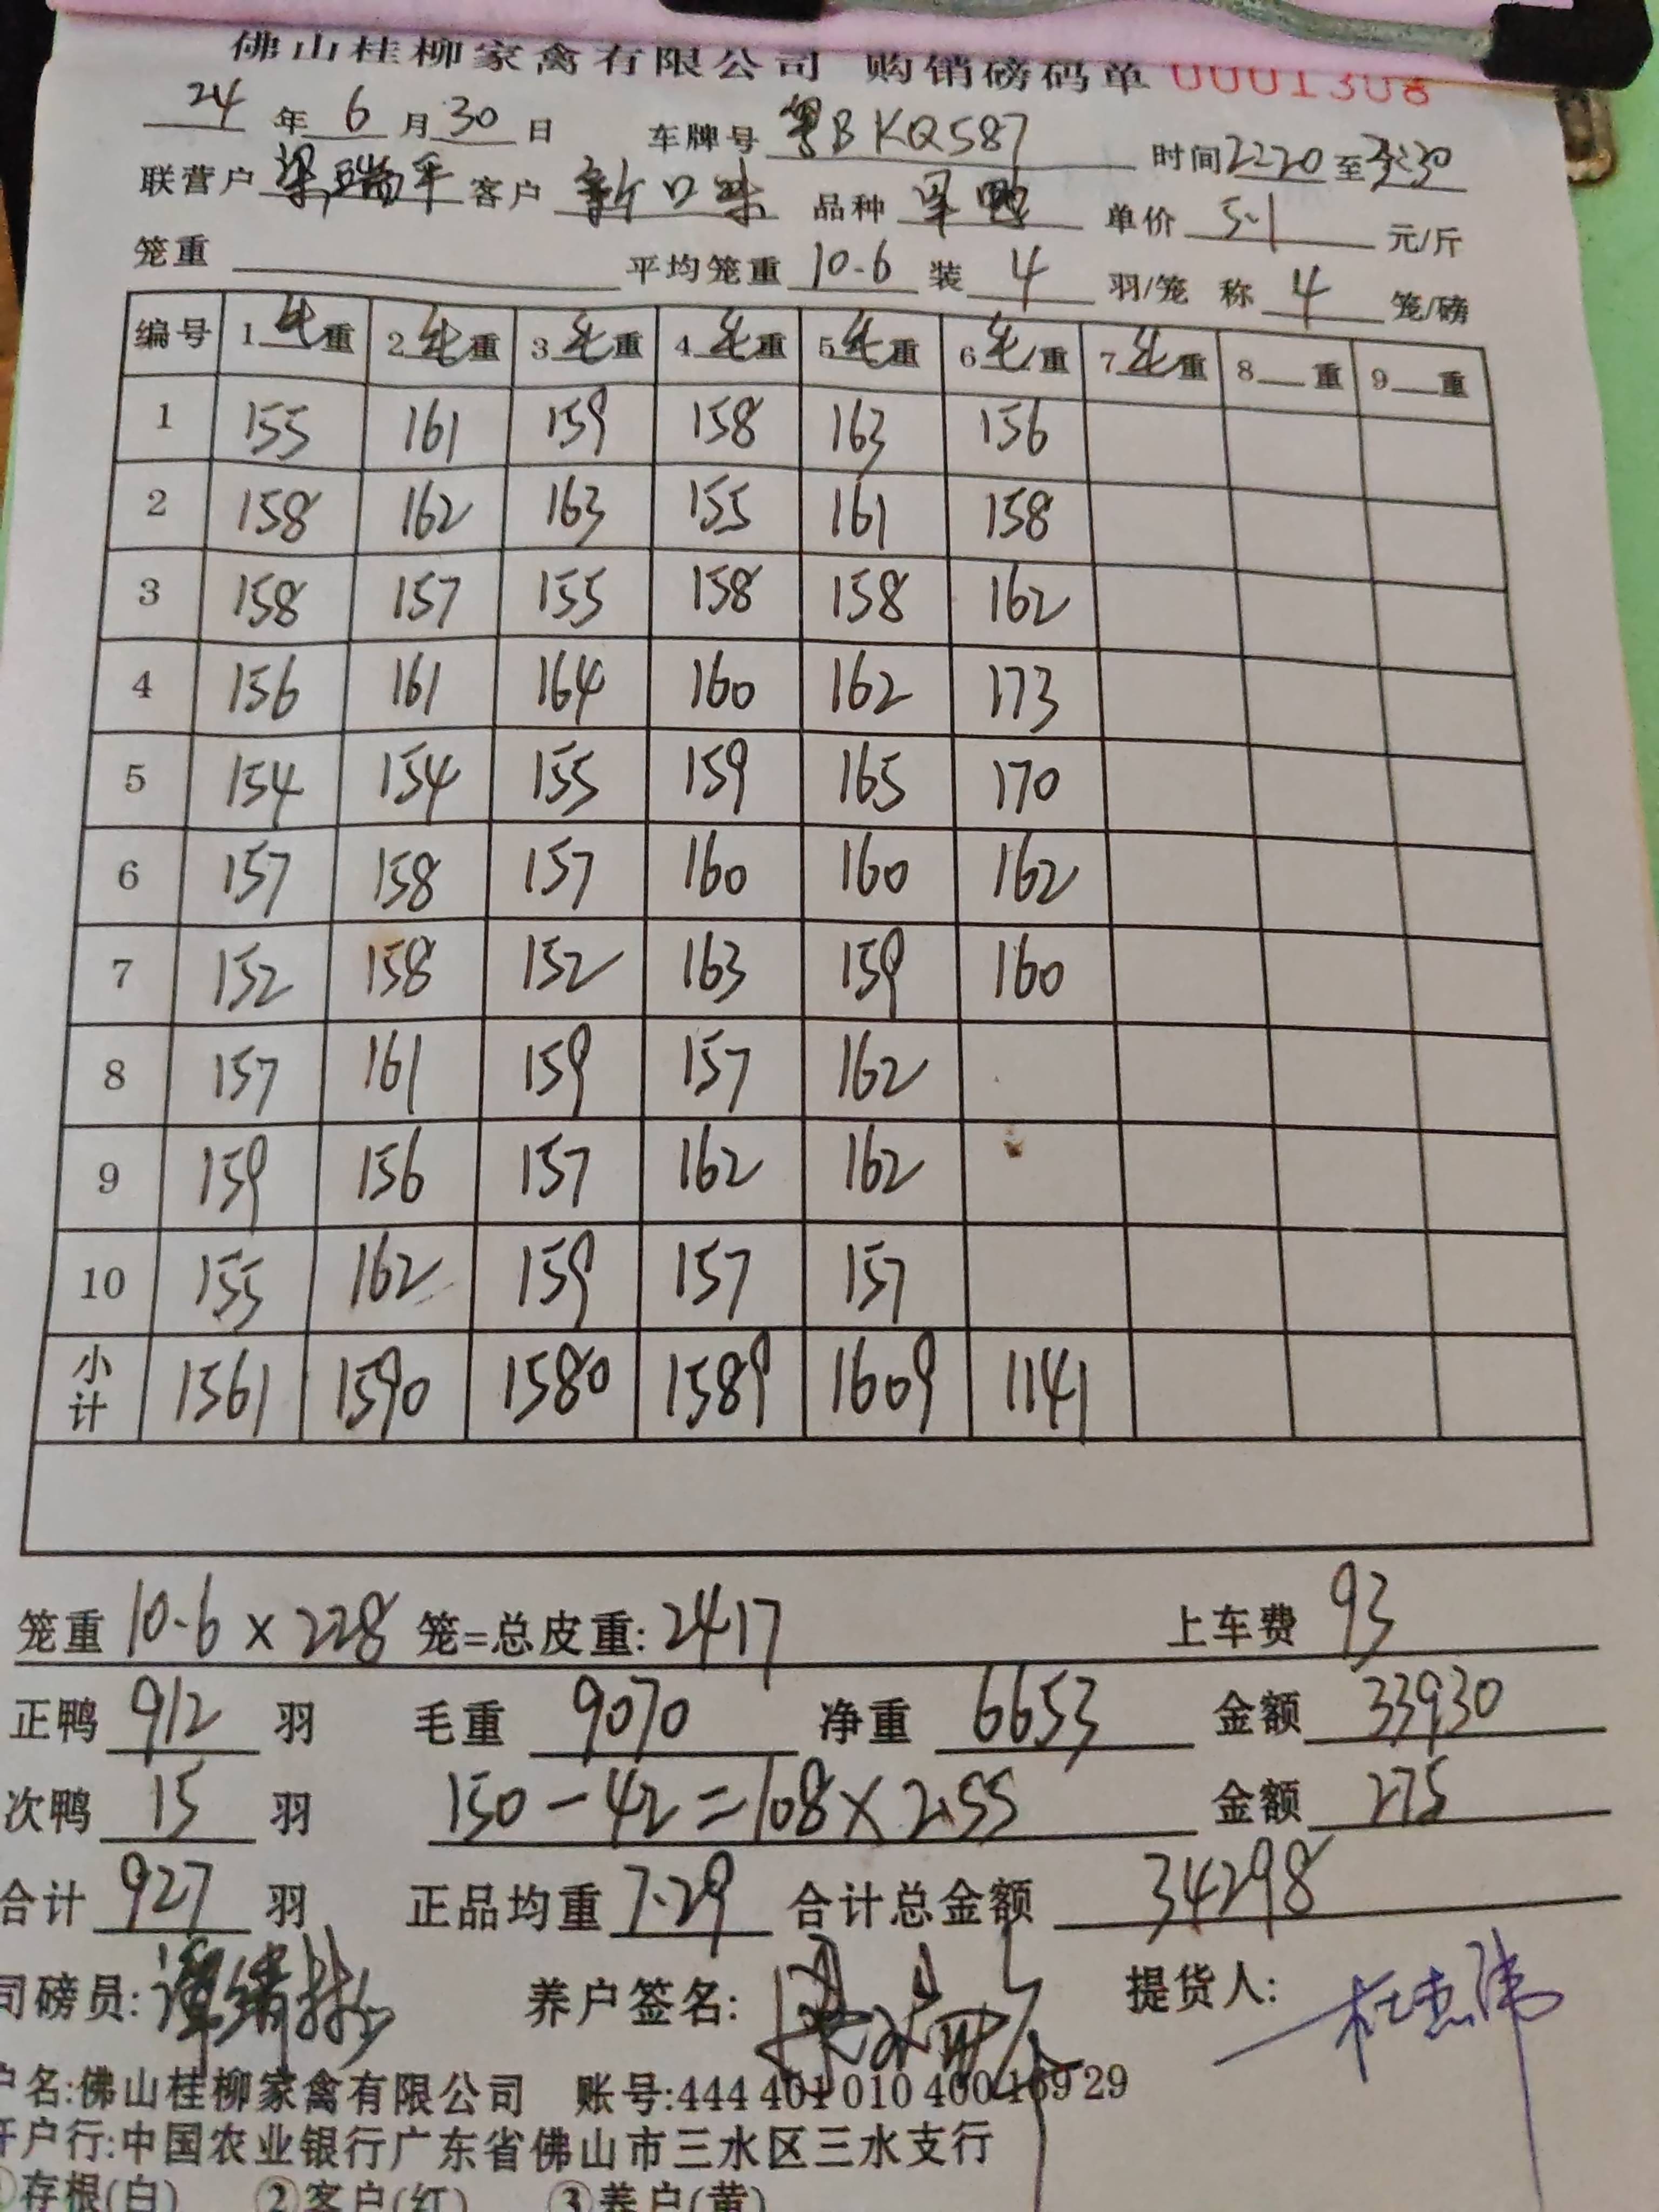 佛山桂柳家禽有限公司 购销磅码单 0001308
24 年 6 月 30 日 车牌号 粤B KQ587 时间 2220 至 3:30
联营户 梁瑞平 客户 新口味 品种 单价 5.1 元/斤
笼重 平均笼重 10.6 装 4 羽/笼 称 4 笼/磅
编号 1 毛 重 2 毛 重 3 毛 重 4 毛 重 5 毛 重 6 毛 重 7 毛 重 8 重 9 重
1 155 161 159 158 163 156
2 158 162 163 155 161 158
3 158 157 155 158 158 162
4 156 161 164 160 162 173
5 154 154 155 159 165 170
6 157 158 157 160 160 162
7 152 158 152 163 159 160
8 157 161 159 157 162
9 159 156 157 162 162
10 155 162 159 157 157
小计 1561 1590 1580 1589 1609 1141
笼重 10.6 × 228 笼=总皮重: 2417 上车费 93
正鸭 912 羽 毛重 9070 净重 6653 金额 33930
次鸭 15 羽 150-42=108×2.55 金额 275
合计 927 羽 正品均重 7.29 合计总金额 34298
司磅员: 养户签名: 提货人: 杜杰伟
户名:佛山桂柳家禽有限公司 账号:444 401 010 400 169 29
开户行:中国农业银行广东省佛山市三水区三水支行
①存根(白) ②客户(红) ③养户(黄)